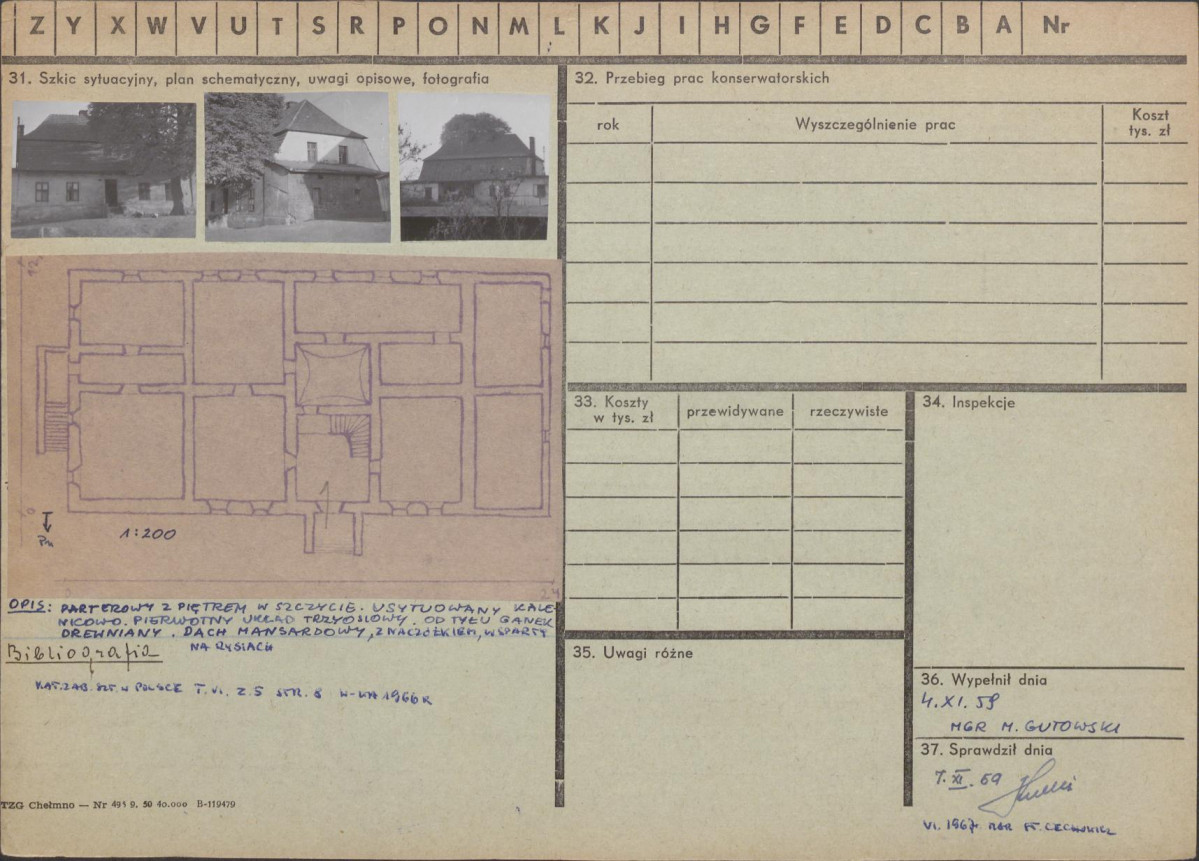 Z Y X W V U T S R P O N M L K J I H G F E D C B A Nr
31. Szkic sytuacyjny, plan schematyczny, uwagi opisowe, fotografia
12
0
Pn
1:200
24
OPIS: PARTEROWY Z PIĘTREM W SZCZYCIE. USYTUOWANY KALE-
NICOWO. PIERWOTNY UKŁAD TRZYOSIOWY. OD TYŁU GANEK
DREWNIANY. DACH MANSARDOWY, Z NACZÓŁKIEM, WSPARTY
NA RYSIACH
Bibliografia
KAT. ZAB. SZT. W POLSCE T. VI. Z. 5 STR. 8 W-WA 1966 R
TZG Chełmno — Nr 9. 50 40.000 B-119479
32. Przebieg prac konserwatorskich
rok
Wyszczególnienie prac
Koszt
tys. zł
33. Koszty
w tys. zł
przewidywane
rzeczywiste
34. Inspekcje
35. Uwagi różne
36. Wypełnił dnia
4. XI. 59
MGR M. GUTOWSKI
37. Sprawdził dnia
7. XI. 59
VI. 1967 MGR